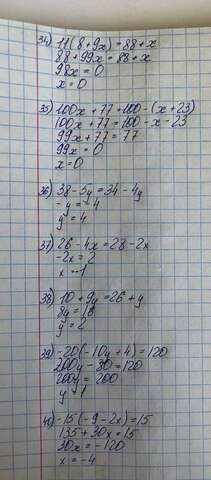 34) 11(8+9x)=88+x
88+99x=88+x
98x=0
x=0
35) 100x+77=100-(x+23)
100x+77=100-x-23
99x+77=77
99x=0
x=0
36) 38-5y=34-4y
-y=-4
y=4
37) 26-4x=28-2x
-2x=2
x=-1
38) 10+9y=26+y
8y=16
y=2
39) -20(-10y+4)=120
200y-80=120
200y=200
y=1
40) -15(-9-2x)=15
135+30x=15
30x=-120
x=-4